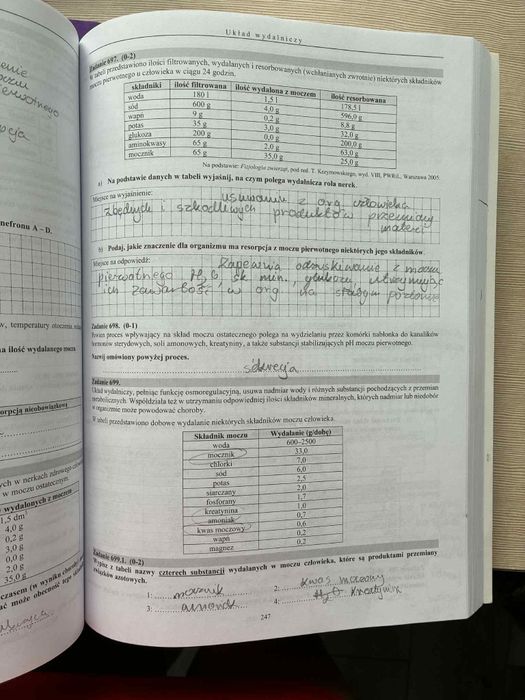 Układ wydalniczy
Zadanie 697. (0-2)
W tabeli przedstawiono ilości filtrowanych, wydalanych i resorbowanych (wchłanianych zwrotnie) niektórych składników
moczu pierwotnego u człowieka w ciągu 24 godzin.
składniki ilość filtrowana ilość wydalona z moczem ilość resorbowana
woda 180 l 1,5 l 178,5 l
sód 600 g 4,0 g 596,0 g
wapń 9 g 0,2 g 8,8 g
potas 35 g 3,0 g 32,0 g
glukoza 200 g 0,0 g 200,0 g
aminokwasy 65 g 2,0 g 63,0 g
mocznik 65 g 35,0 g 25,0 g
Na podstawie: Fizjologia zwierząt, pod red. T. Krzymowskiego, wyd. VIII, PWRiL, Warszawa 2005.
a) Na podstawie danych w tabeli wyjaśnij, na czym polega wydalnicza rola nerek.
Miejsce na wyjaśnienie:
usuwanie z org. człowieka
zbędnych i szkodliwych produktów przemiany
materii
b) Podaj, jakie znaczenie dla organizmu ma resorpcja z moczu pierwotnego niektórych jego składników.
Miejsce na odpowiedź:
Zapewnia odzyskiwanie z moczu
pierwotnego H2O, sk. min., glukozy, utrzymując
ich zawartość w org. na stałym poziomie
Zadanie 698. (0-1)
Pewien proces wpływający na skład moczu ostatecznego polega na wydzielaniu przez komórki nabłonka do kanalików
hormonów sterydowych, soli amonowych, kreatyniny, a także substancji stabilizujących pH moczu pierwotnego.
Nazwij omówiony powyżej proces.
sekrecja
Zadanie 699.
Układ wydalniczy, pełniąc funkcję osmoregulacyjną, usuwa nadmiar wody i różnych substancji pochodzących z przemian
metabolicznych. Współdziała też w utrzymaniu odpowiedniej ilości składników mineralnych, których nadmiar lub niedobór
w organizmie może powodować choroby.
W tabeli przedstawiono dobowe wydalanie niektórych składników moczu człowieka.
Składnik moczu Wydalanie (g/dobę)
woda 600–2500
mocznik 33,0
chlorki 7,0
sód 6,0
potas 2,5
siarczany 2,0
fosforany 1,7
kreatynina 1,0
amoniak 0,7
kwas moczowy 0,6
wapń 0,2
magnez 0,2
Zadanie 699.1. (0-2)
Wypisz z tabeli nazwy czterech substancji wydalanych w moczu człowieka, które są produktami przemiany
związków azotowych.
1: mocznik 2: kwas moczowy
3: amoniak 4: H2O kreatynina
247
nefronu A – D.
w, temperatury otoczenia
na ilość wydalanego moczu
orpcją nieobowiązkową
ych w nerkach zdrowego
w moczu ostatecznym.
wydalonych z moczem
1,5 dm³
4,0 g
0,2 g
3,0 g
0,0 g
2,0 g
35,0 g
czasem (w wyniku
ać może obecność tego